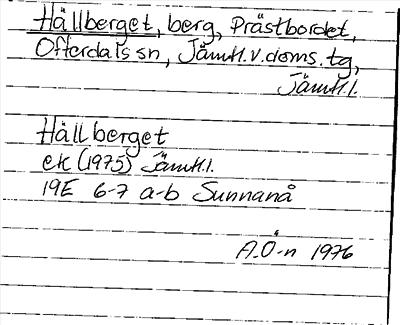 Hällberget, berg, Prästbordet,
Offerdals sn, Jämtl. v. doms. tg,
Jämtl. l.
Hällberget
ek (1975) Jämtl. l.
19E 6-7 a-b Sunnanå
A.Ö-n 1976